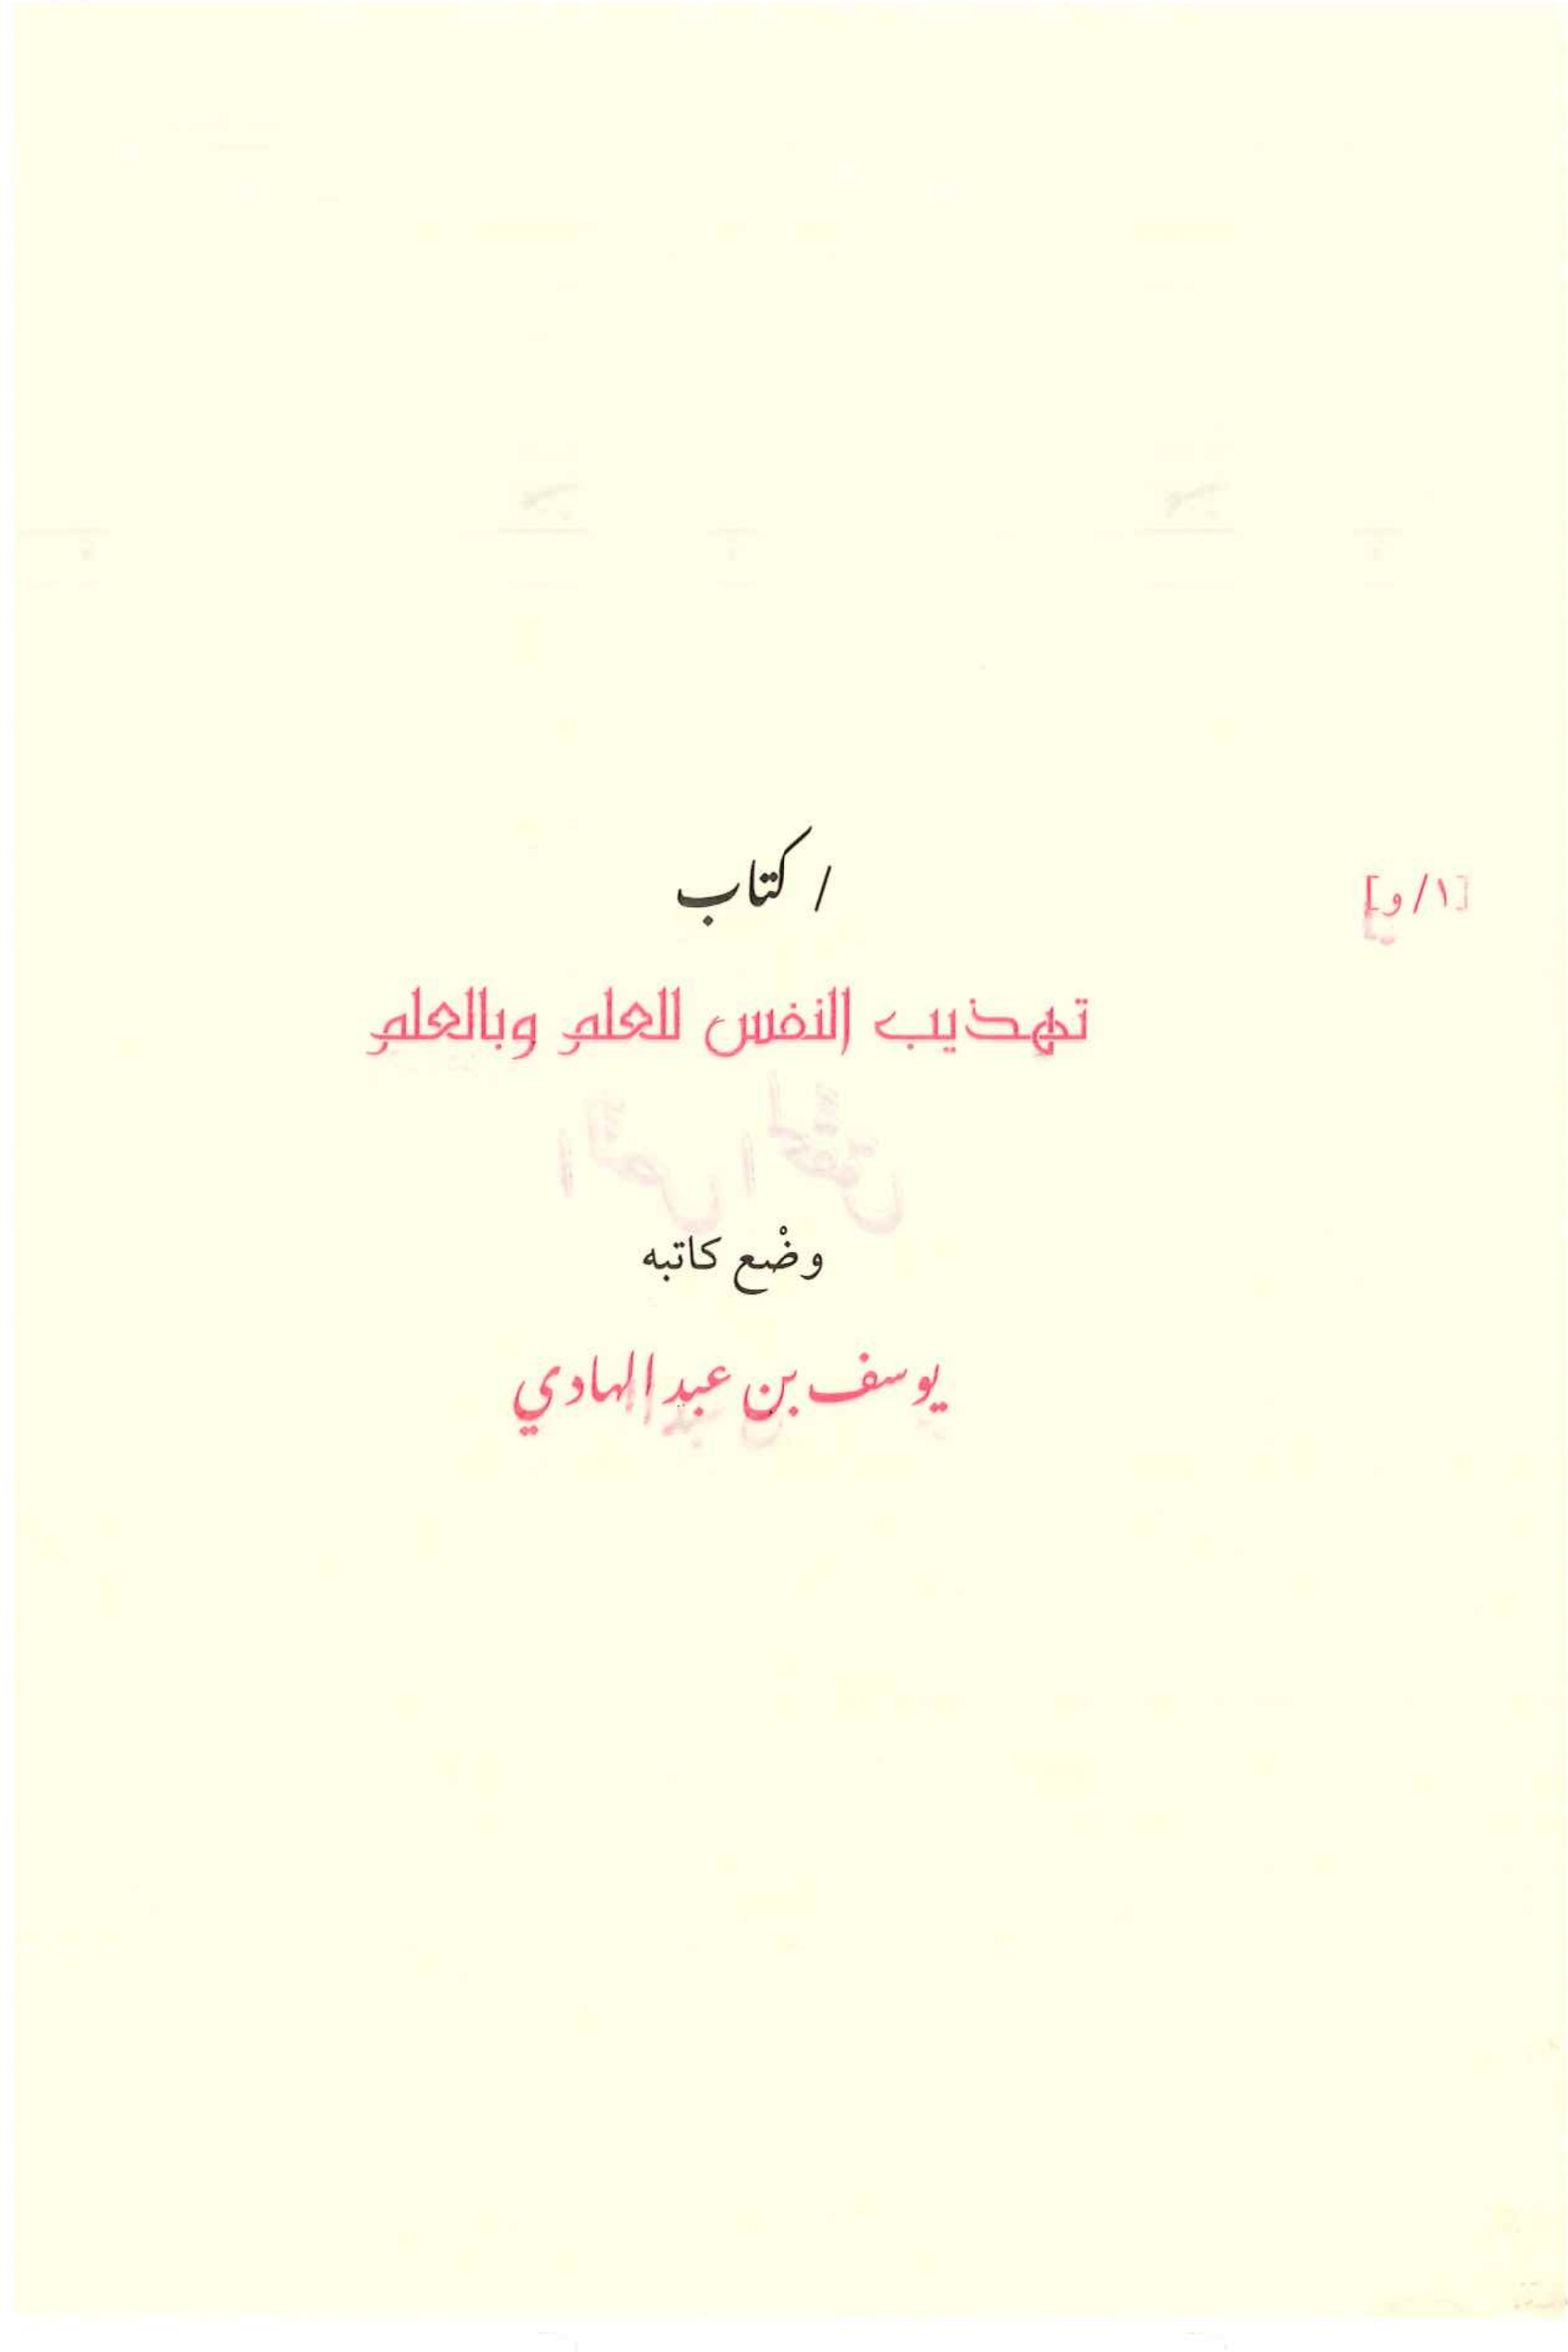 [١/و] / كتاب
تهذيب النفس للعلم وبالعلم
وضْع كاتبه
يوسف بن عبد الهادي